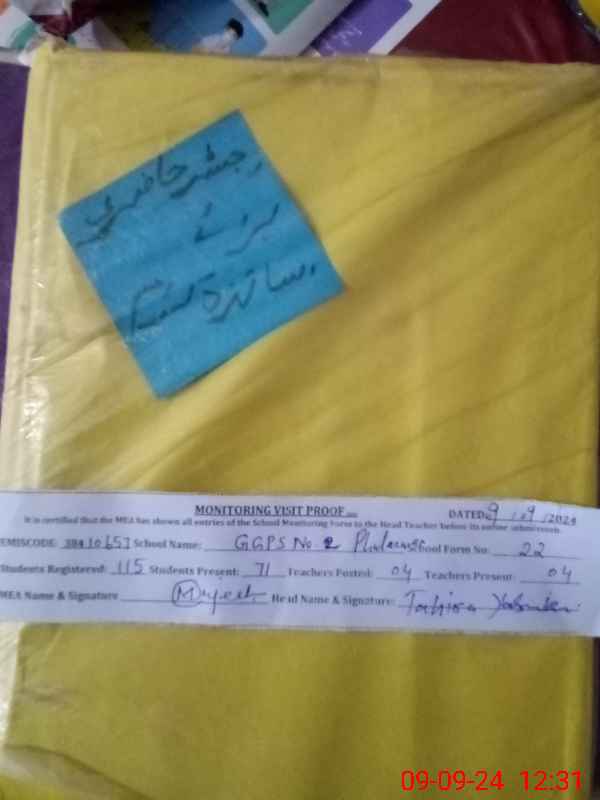 رجسٹر حاضری
برائے
اساتذہ کرام
MONITORING VISIT PROOF
DATED: 9 / 9 /2024
It is certified that the MEA has shown all entries of the School Monitoring Form to the Head Teacher before its online submission.
EMISCODE: 38410657 School Name: GGPS No. 2 School Form No: 22
Students Registered: 115 Students Present: 71 Teachers Posted: 04 Teachers Present: 04
MEA Name & Signature Head Name & Signature: Tahira
09-09-24 12:31